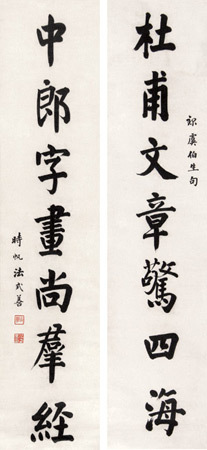 杜甫文章驚四海
録虞伯生句
中郎字畫尚羣經
時帆法式善